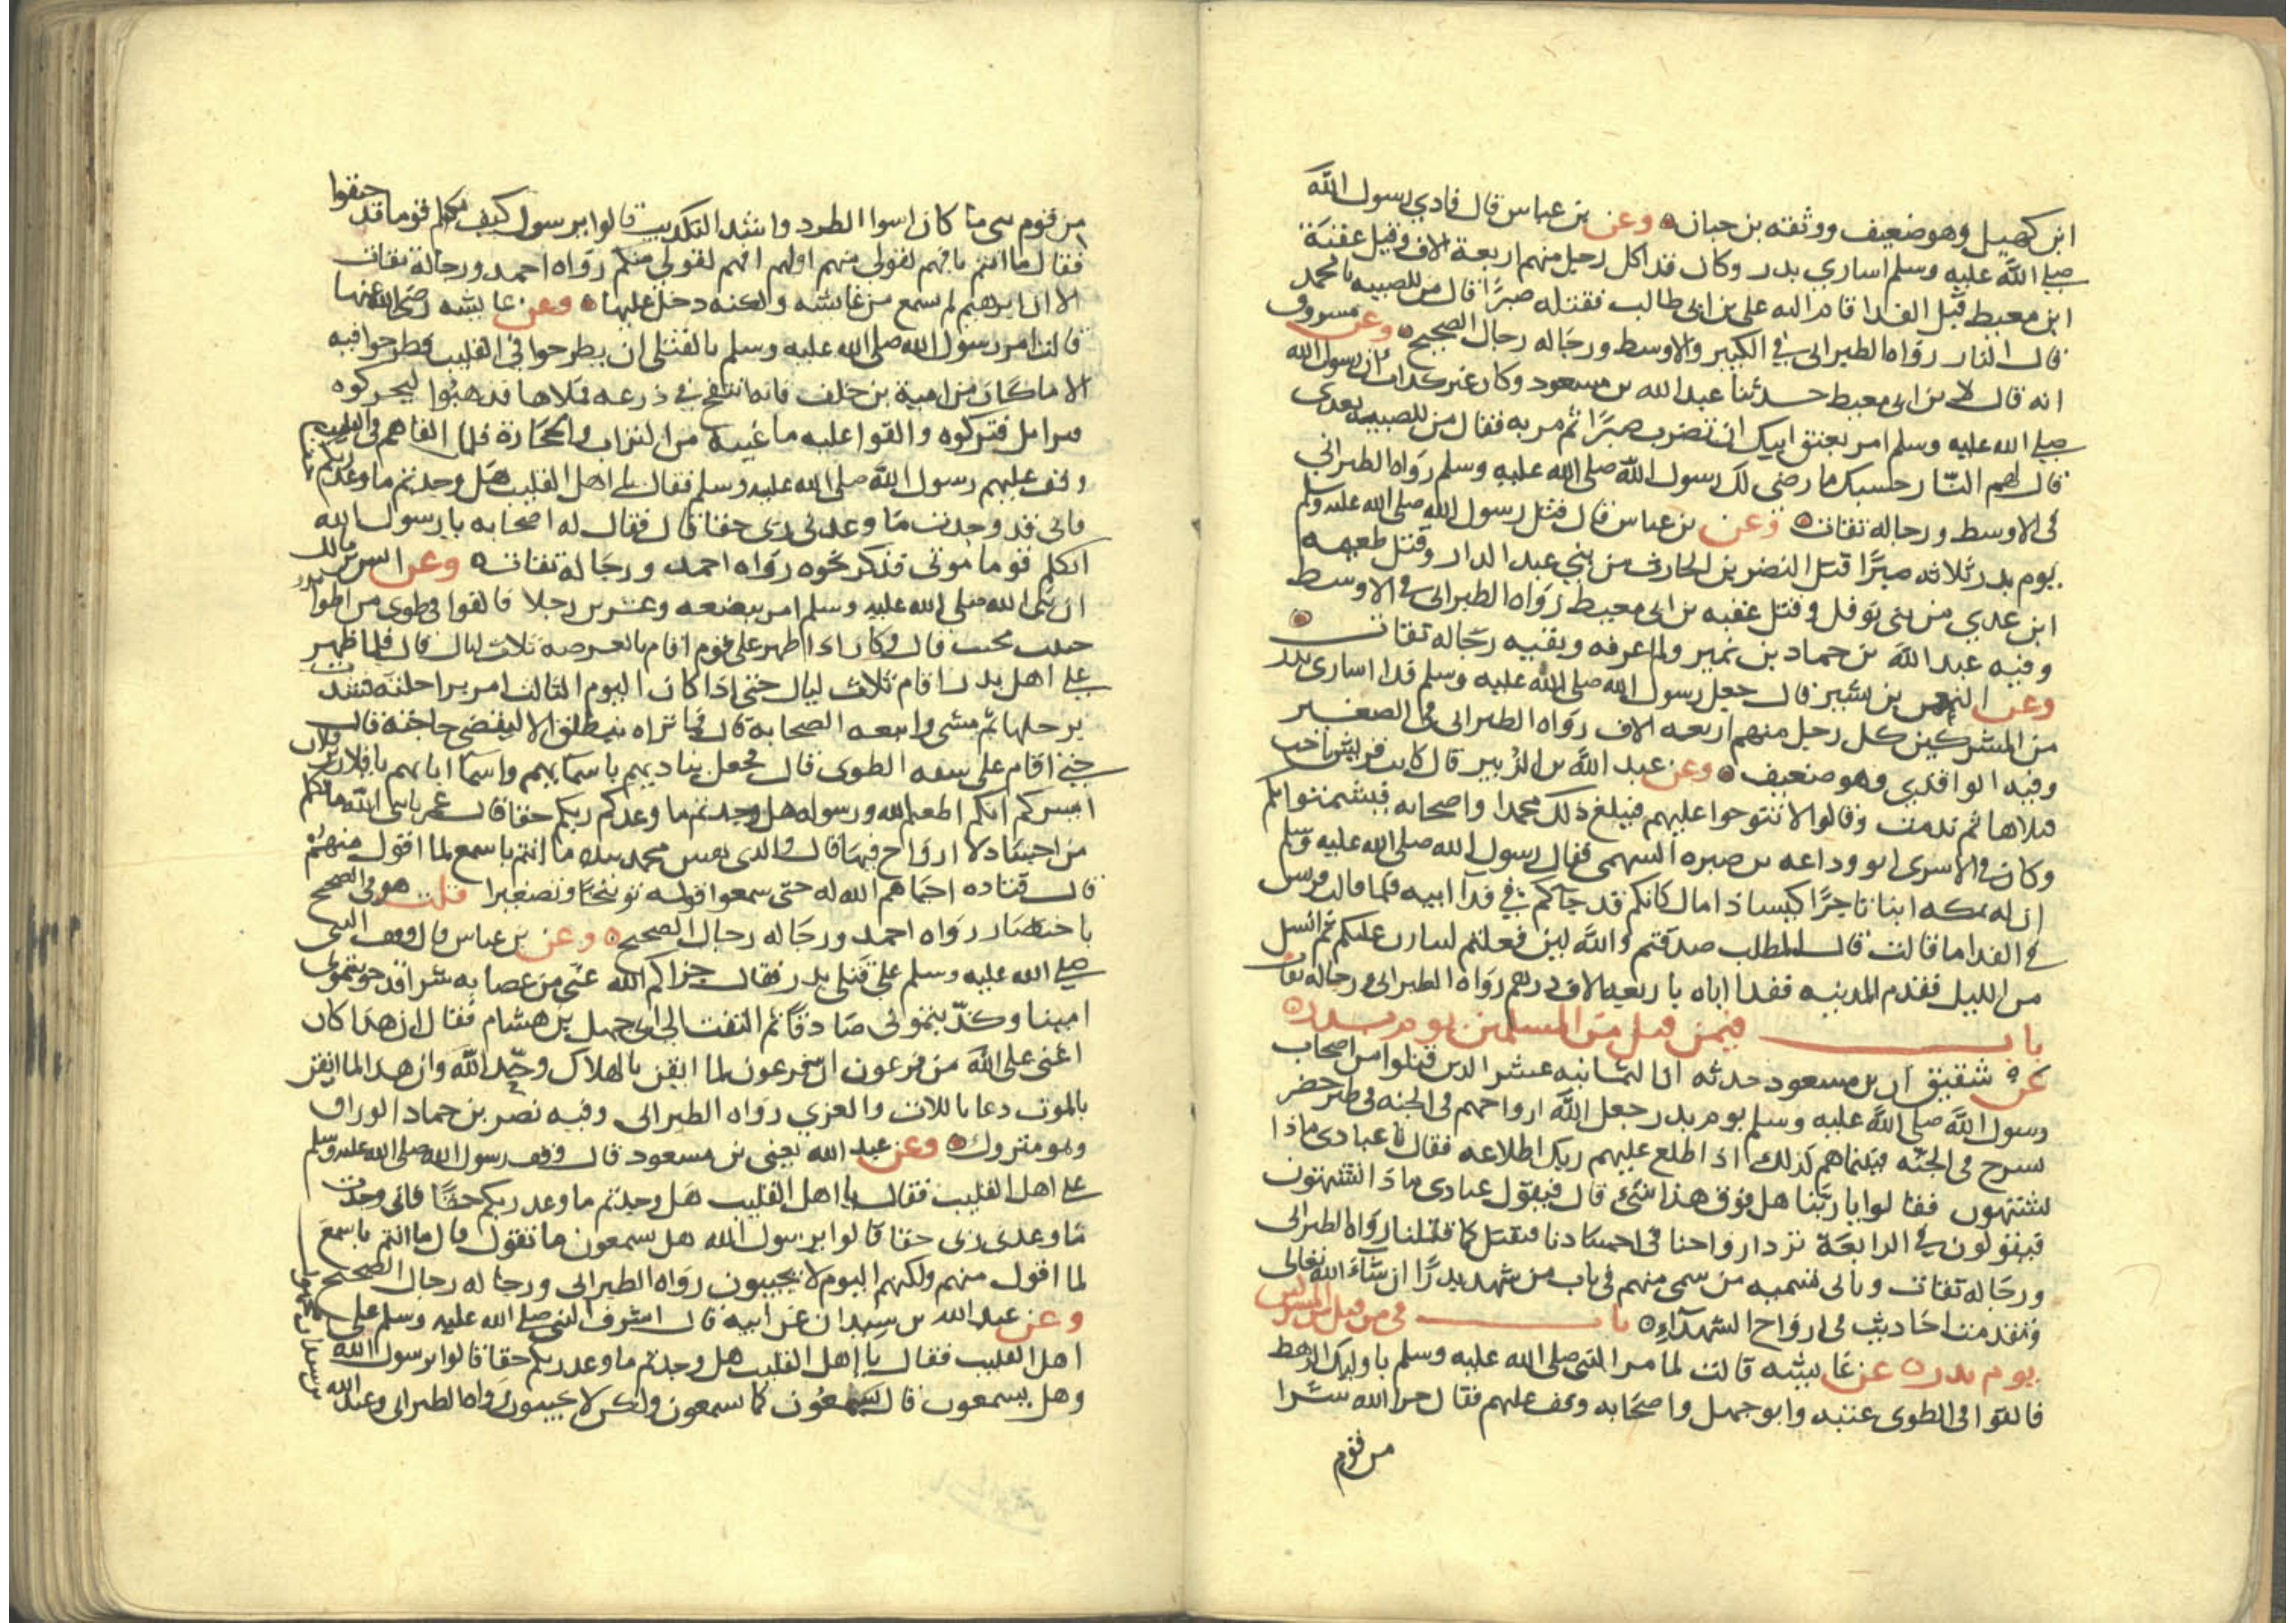 ابن كهيل وهو ضعيف ووثقه بن حبان وعن بن عباس قال فادي رسول الله
صلى الله عليه وسلم اساري بدر وكان فدا كل رجل منهم اربعة الاف وقتل عقبة
ابن معيط قبل الفدا قام اليه علي بن ابي طالب فقتله صبرًا قال من للصبيه يا محمد
قال النار رواه الطبراني في الكبير والاوسط ورجاله رجال الصحيح وعن مسروق
انه قال لابن ابي معيط حدثنا عبد الله بن مسعود وكان غير كذاب ان رسول الله
صلى الله عليه وسلم امر بعنق ابيك ان تضرب صبرًا ثم مر به فقال من للصبيه بعدي
قال لهم النار حسبك ما رضي لك رسول الله صلى الله عليه وسلم رواه الطبراني
في الاوسط ورجاله ثقات وعن بن عباس قال قتل رسول الله صلى الله عليه وسلم
يوم بدر ثلاثه صبرًا قتل النضر بن الحارث من بني عبد الدار وقتل طعيمه
ابن عدي من بني نوفل وقتل عقبه بن ابي معيط رواه الطبراني في الاوسط
وفيه عبد الله بن حماد بن نمير ولم اعرفه وبقيه رجاله ثقات
وعن النعمن بن بشير قال جعل رسول الله صلى الله عليه وسلم فدا اسارى بدر
من المشركين كل رجل منهم اربعه الاف رواه الطبراني في الصغير
وفيه الواقدي وهو ضعيف وعن عبد الله بن الزبير قال كانت قريش ناحت
قتلاها ثم ندمت وقالوا لا تنوحوا عليهم فيبلغ ذلك محمدا واصحابه فيشمتوا بكم
وكان في الاسرى ابو وداعه بن صبره السهمي فقال رسول الله صلى الله عليه وسلم
ان له بمكه ابنا تاجرًا كيسا ذا مال كانكم قد جاكم في فدا ابيه فلما قالت قريش
في الفدا ما قالت قال المطلب صدقتم والله لين فعلتم ليتارن عليكم ثم انسل
من الليل فقدم المدينه ففدا اباه باربعه الاف درهم رواه الطبراني ورجاله ثقات
باب فيمن قتل من المسلمين يوم بدر
عن شقيق ان بن مسعود حدثه ان الثمانيه عشر الذين قتلوا من اصحاب
رسول الله صلى الله عليه وسلم يوم بدر جعل الله ارواحهم في الجنه في طير خضر
تسرح في الجنه فبينما هم كذلك اذ اطلع عليهم ربك اطلاعه فقال يا عبادي ماذا
تشتهون فقالوا يا ربنا هل فوق هذا شئ قال فيقول عبادي ماذا تشتهون
فيقولون في الرابعة ترد ارواحنا في اجسادنا فنقتل كما قتلنا رواه الطبراني
ورجاله ثقات وياتي تسميه من سمى منهم في باب من شهد بدرًا ان شاء الله تعالى
وتقدمت احاديث في ارواح الشهداء باب في من قتل من المشركين
يوم بدر عن عايشه قالت لما مر النبي صلى الله عليه وسلم باوليك الرهط
فالقوا في الطوى عتبه وابو جهل واصحابه وقف عليهم فقال جزا الله شرا
من قوم
من قوم نبي ما كان اسوا الطرد واشد التكذيب قالوا يرسول كيف تكلم قوما قد جيفوا
فقال ما انتم بافهم لقولي منهم اولهم افهم لقولي منكم رواه احمد ورجاله ثقات
الا ان ابرهيم لم يسمع من عايشه ولكنه دخل عليها وعن عايشه رضي الله عنها
قالت امر رسول الله صلى الله عليه وسلم بالقتلى ان يطرحوا في القليب فطرحوا فيه
الا ما كان من امية بن خلف فانه انتفخ في درعه فملاها فذهبوا ليحركوه
فتزايل فتركوه والقوا عليه ما غيبه من التراب والحجارة فلما القاهم في القليب
وقف عليهم رسول الله صلى الله عليه وسلم فقال يا اهل القليب هل وجدتم ما وعدكم ربكم
فاني قد وجدت ما وعدني ربي حقا قال فقال له اصحابه يا رسول الله
اتكلم قوما موتى فذكر نحوه رواه احمد ورجاله ثقات وعن انس بن مالك
ان نبي الله صلى الله عليه وسلم امر ببضعه وعشرين رجلا فالقوا في طوى من اطوا بدر
خبيث مخبث قال وكان اذا اظهر على قوم اقام بالعرصه ثلاث ليال قال فلما ظهر
على اهل بدر اقام ثلاث ليال حتى اذا كان اليوم الثالث امر براحلته فشدت
برحلها ثم مشى واتبعه الصحابه قال فما نراه ينطلق الا ليقضي حاجته قال
حتى اقام على شفه الطوى قال فجعل يناديهم باسمايهم واسما ابايهم يا فلان بن فلان
ايسركم انكم اطعتم الله ورسوله هل وجدتم ما وعدكم ربكم حقا قال عمر يا نبي الله ما تكلم
من اجساد لا ارواح فيها قال والذي نفس محمد بيده ما انتم باسمع لما اقول منهم
قال قتاده احياهم الله له حتى سمعوا قوله توبيخًا وتصغيرا قلت هو في الصحيح
باختصار رواه احمد ورجاله رجال الصحيح وعن بن عباس قال وقف النبي
صلى الله عليه وسلم على قتلى بدر فقال جزاكم الله عني من عصابه شرا قد خونتموني
امينا وكذبتموني صادقًا ثم التفت الى ابي جهل بن هشام فقال ان هذا كان
اعتى على الله من فرعون ان فرعون لما ايقن بالهلاك وحّد الله وان هذا لما ايقن
بالموت دعا باللات والعزي رواه الطبراني وفيه نصر بن حماد الوراق
وهو متروك وعن عبد الله يعني بن مسعود قال وقف رسول الله صلى الله عليه وسلم
على اهل القليب فقال يا اهل القليب هل وجدتم ما وعد ربكم حقًا فاني وجدت
ما وعدني ربي حقا قالوا يرسول الله هل يسمعون ما تقول قال ما انتم باسمع
لما اقول منهم ولكنهم اليوم لا يجيبون رواه الطبراني ورجاله رجال الصحيح
وعن عبد الله بن سيدان عن ابيه قال اشرف النبي صلى الله عليه وسلم على
اهل القليب فقال يا اهل القليب هل وجدتم ما وعد ربكم حقا قالوا يرسول الله
وهل يسمعون قال يسمعون كما تسمعون ولكن لا يجيبون رواه الطبراني وعبد الله